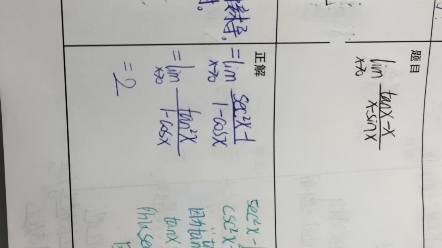 题目
lim x→0 (tanx-x)/(x-sinx)
正解
=lim x→0 (sec²x-1)/(1-cosx)
=lim x→0 tan²x/(1-cosx)
=2
sec²x-
csc²x-
tanx